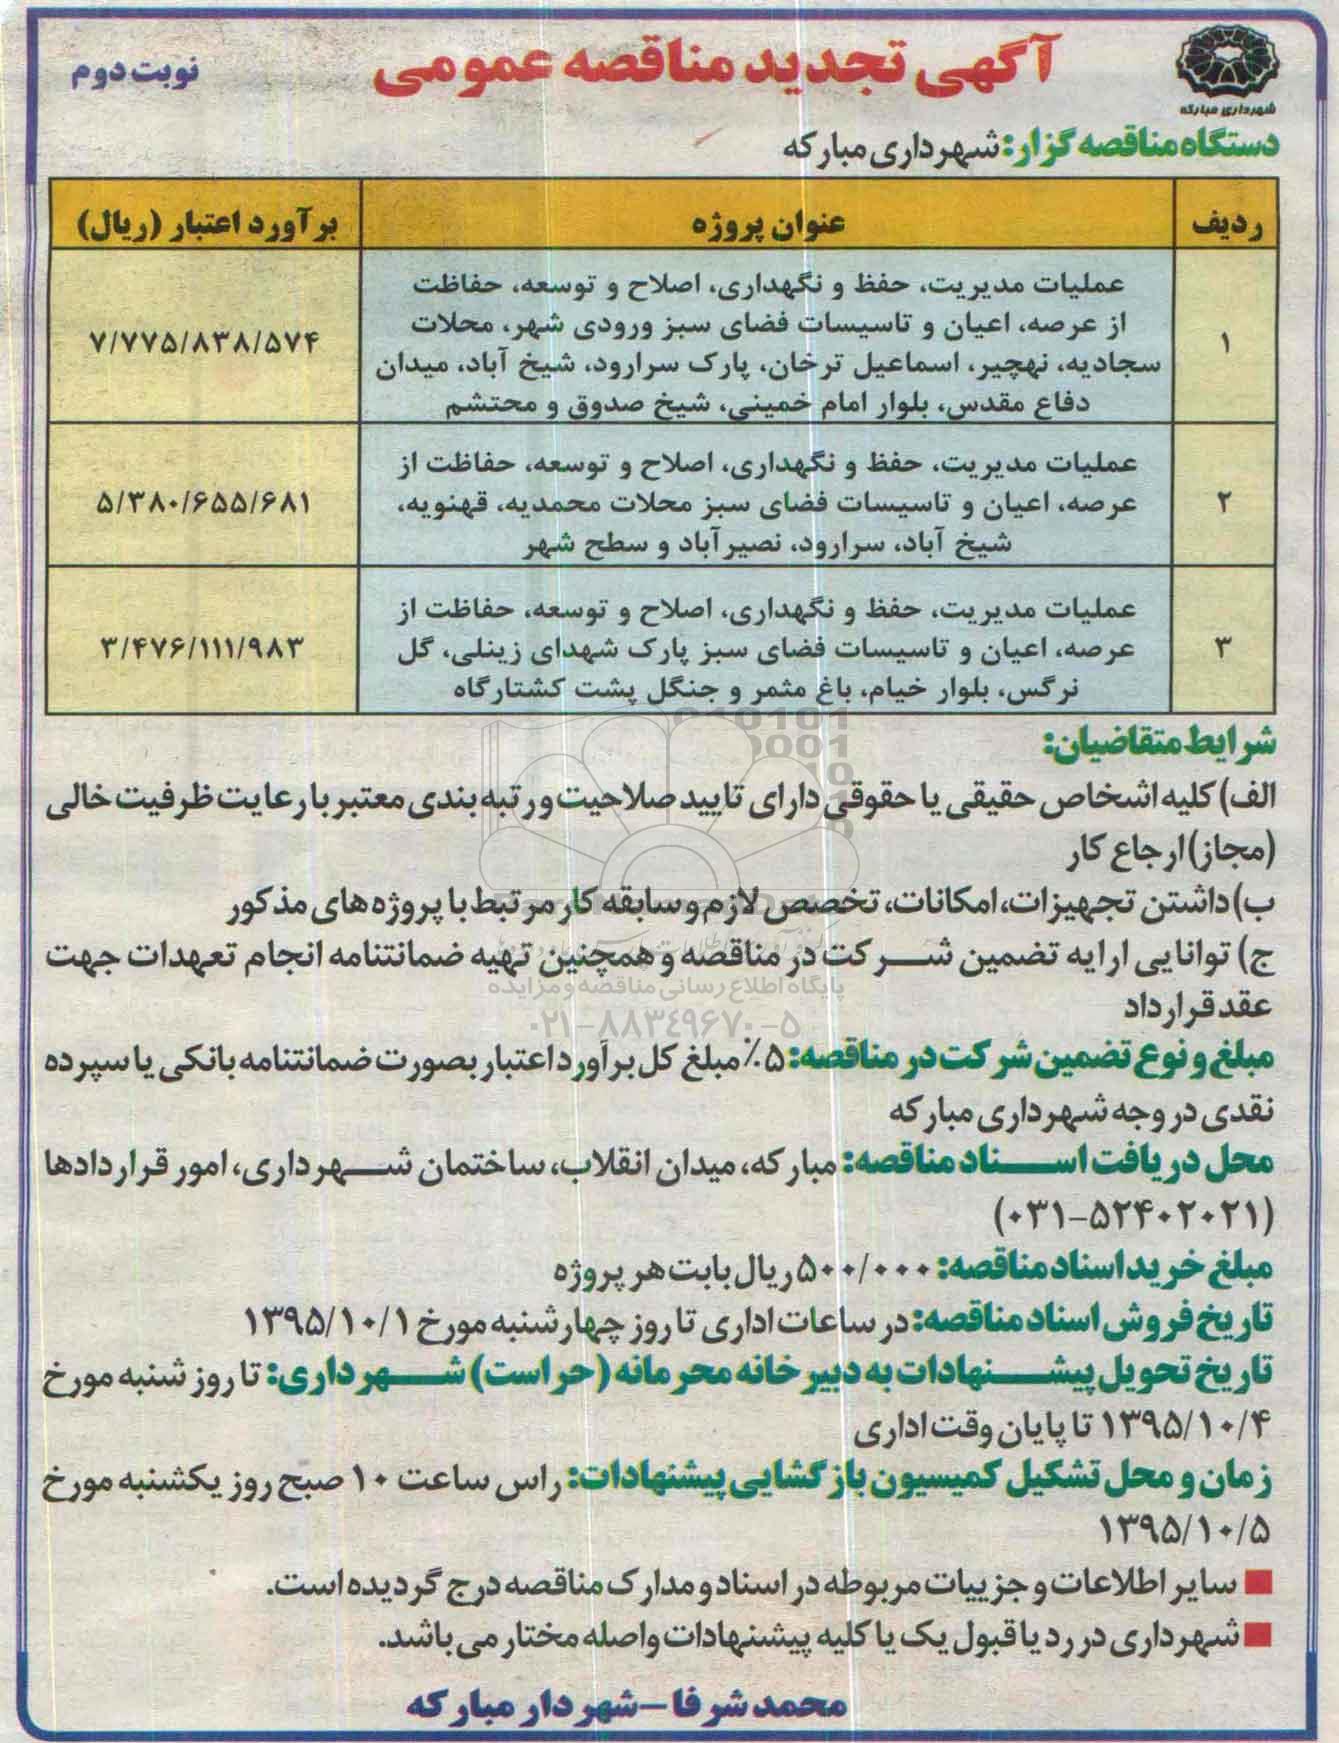 آگهی تجدید مناقصه عمومی
نوبت دوم
شهرداری مبارکه
دستگاه مناقصه گزار: شهرداری مبارکه
ردیف عنوان پروژه برآورد اعتبار (ریال)
۱
عملیات مدیریت، حفظ و نگهداری، اصلاح و توسعه، حفاظت
از عرصه، اعیان و تاسیسات فضای سبز ورودی شهر، محلات
سجادیه، نهچیر، اسماعیل ترخان، پارک سرارود، شیخ آباد، میدان
دفاع مقدس، بلوار امام خمینی، شیخ صدوق و محتشم
۷/۷۷۵/۸۳۸/۵۷۴
۲
عملیات مدیریت، حفظ و نگهداری، اصلاح و توسعه، حفاظت از
عرصه، اعیان و تاسیسات فضای سبز محلات محمدیه، قهنویه،
شیخ آباد، سرارود، نصیرآباد و سطح شهر
۵/۳۸۰/۶۵۵/۶۸۱
۳
عملیات مدیریت، حفظ و نگهداری، اصلاح و توسعه، حفاظت از
عرصه، اعیان و تاسیسات فضای سبز پارک شهدای زینلی، گل
نرگس، بلوار خیام، باغ مثمر و جنگل پشت کشتارگاه
۳/۴۷۶/۱۱۱/۹۸۳
شرایط متقاضیان:
الف) کلیه اشخاص حقیقی یا حقوقی دارای تایید صلاحیت و رتبه بندی معتبر با رعایت ظرفیت خالی
(مجاز) ارجاع کار
ب) داشتن تجهیزات، امکانات، تخصص لازم و سابقه کار مرتبط با پروژه های مذکور
ج) توانایی ارایه تضمین شرکت در مناقصه و همچنین تهیه ضمانتنامه انجام تعهدات جهت
عقد قرارداد
پایگاه اطلاع رسانی مناقصه و مزایده
۰۲۱-۸۸۳۴۹۶۷۰-۵
مبلغ و نوع تضمین شرکت در مناقصه: ۵٪ مبلغ کل برآورد اعتبار بصورت ضمانتنامه بانکی یا سپرده
نقدی در وجه شهرداری مبارکه
محل دریافت اسناد مناقصه: مبارکه، میدان انقلاب، ساختمان شهرداری، امور قراردادها
(۰۳۱-۵۲۴۰۲۰۲۱)
مبلغ خرید اسناد مناقصه: ۵۰۰/۰۰۰ ریال بابت هر پروژه
تاریخ فروش اسناد مناقصه: در ساعات اداری تا روز چهارشنبه مورخ ۱۳۹۵/۱۰/۱
تاریخ تحویل پیشنهادات به دبیرخانه محرمانه (حراست) شهرداری: تا روز شنبه مورخ
۱۳۹۵/۱۰/۴ تا پایان وقت اداری
زمان و محل تشکیل کمیسیون بازگشایی پیشنهادات: راس ساعت ۱۰ صبح روز یکشنبه مورخ
۱۳۹۵/۱۰/۵
سایر اطلاعات و جزییات مربوطه در اسناد و مدارک مناقصه درج گردیده است.
شهرداری در رد یا قبول یک یا کلیه پیشنهادات واصله مختار می باشد.
محمد شرفا - شهردار مبارکه